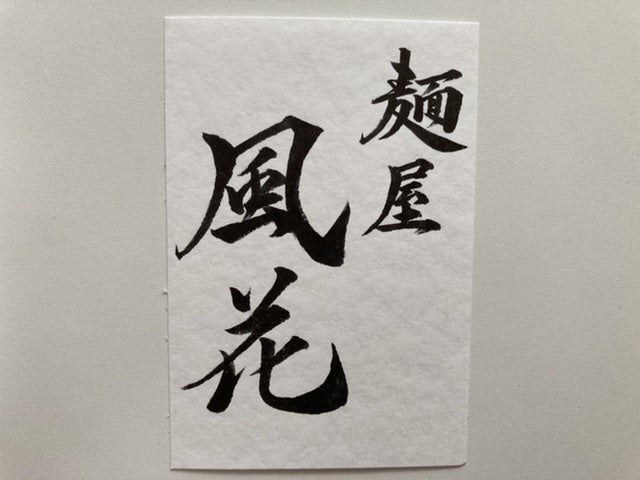 麺屋
風花